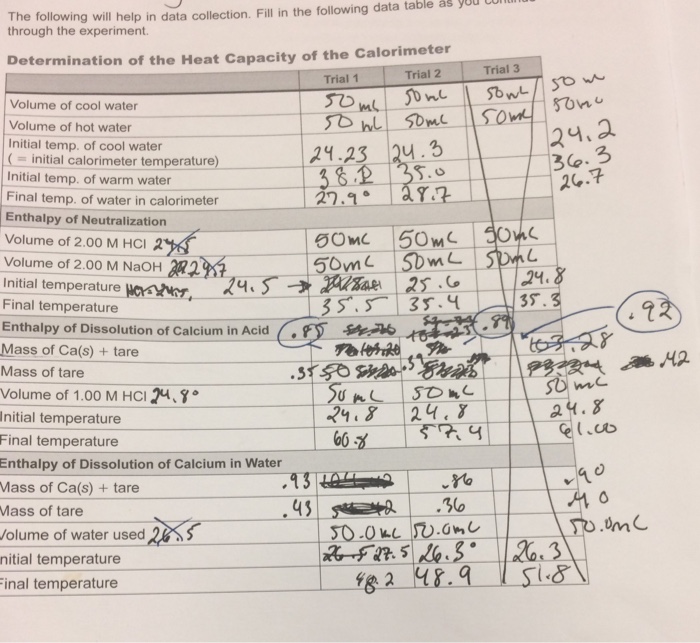 The following will help in data collection. Fill in the following data table as you
through the experiment.
Determination of the Heat Capacity of the Calorimeter
Trial 1 Trial 2 Trial 3
Volume of cool water 50 mL 50mL 50mL 50 m
Volume of hot water 50 mL 50mL 50mL 50mL
Initial temp. of cool water
(= initial calorimeter temperature) 24.23 24.3 24.2
Initial temp. of warm water 38.2 35.0 36.3
Final temp. of water in calorimeter 27.9° 28.7 26.7
Enthalpy of Neutralization
Volume of 2.00 M HCl 50mL 50mL 50mL
Volume of 2.00 M NaOH 50mL 50mL 50mL
Initial temperature 24.5 25.6 24.8
Final temperature 35.5 35.4 35.3
Enthalpy of Dissolution of Calcium in Acid .85 .89 .92
Mass of Ca(s) + tare 103.28
Mass of tare .35 .42
Volume of 1.00 M HCl 24.8° 50mL 50mL 50mL
Initial temperature 24.8 24.8 24.8
Final temperature 60.8 57.4
Enthalpy of Dissolution of Calcium in Water
Mass of Ca(s) + tare .93 .86 .90
Mass of tare .43 .36 .40
Volume of water used 26.5 50.0mL 50.0mL 50.0mL
nitial temperature 27.5 26.3° 26.3
Final temperature 48.2 48.9 51.8